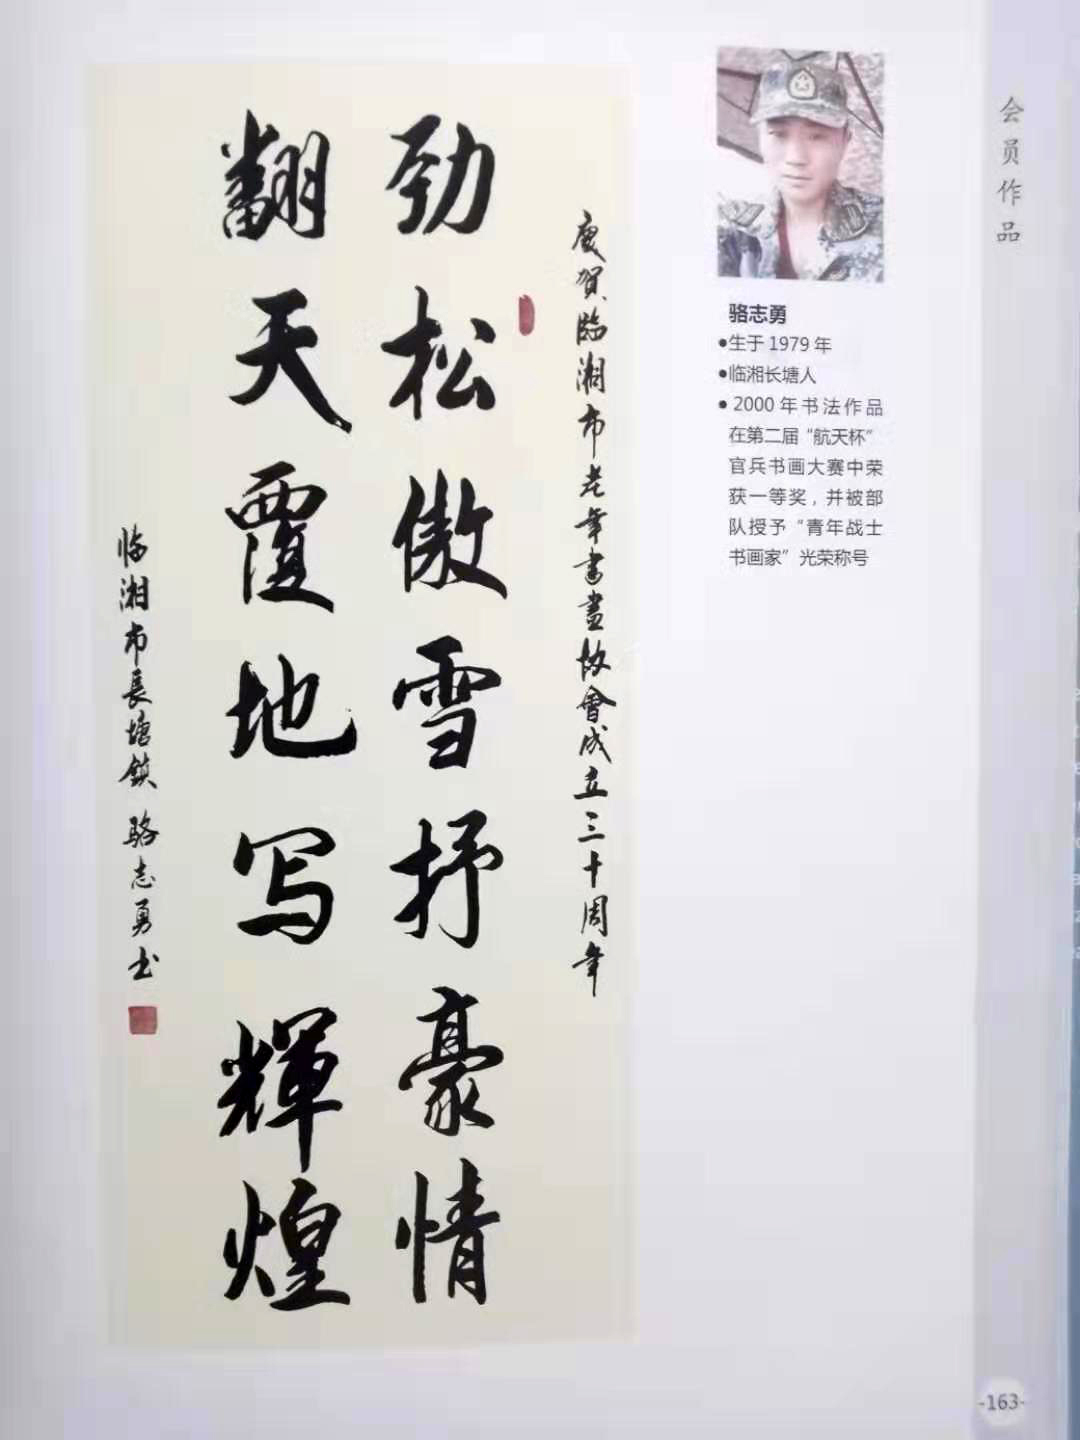 会员作品
庆贺臨湘市老年書畫协會成立三十周年
劲松傲雪抒豪情
翻天覆地写輝煌
临湘市長塘鎮 骆志勇书
骆志勇
●生于1979年
●临湘长塘人
●2000年书法作品
在第二届“航天杯”
官兵书画大赛中荣
获一等奖，并被部
队授予“青年战士
书画家”光荣称号
-163-